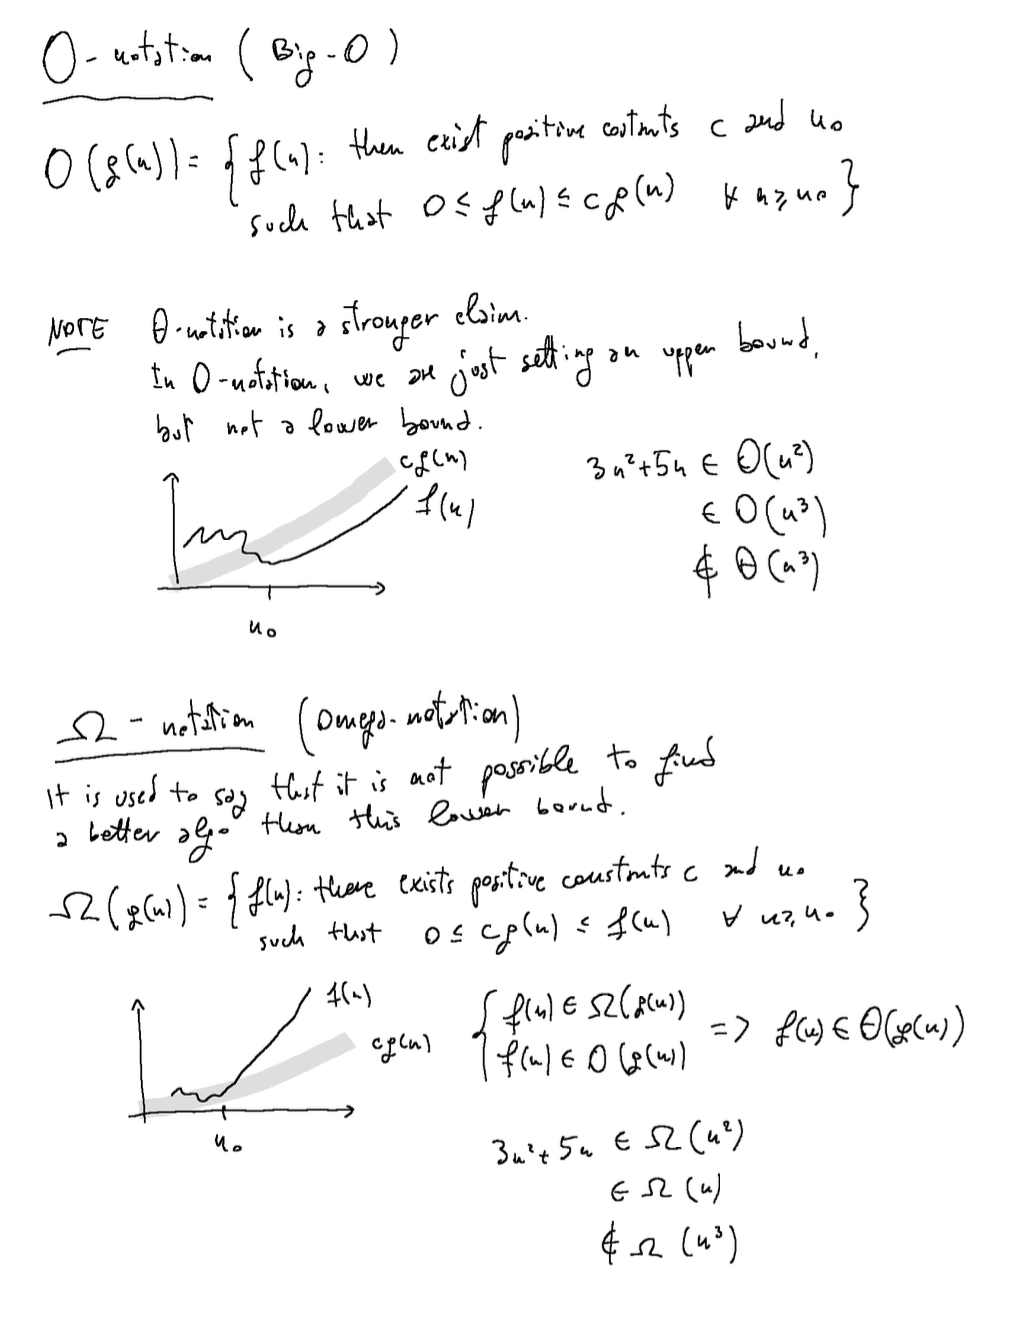 O-notation (Big-O)
O(g(n)) = { f(n): then exist positive costants c and n₀
such that 0 ≤ f(n) ≤ c g(n) ∀ n ≥ n₀ }
NOTE θ-notation is a stronger claim.
In O-notation, we are just setting an upper bound,
but not a lower bound.
cg(n)
f(n)
n₀
3n²+5n ∈ Θ(n²)
∈ O(n³)
∉ Θ(n³)
Ω-notation (Omega-notation)
It is used to say that it is not possible to find
a better algo than this lower bound.
Ω(g(n)) = { f(n): there exists positive constants c and n₀
such that 0 ≤ cg(n) ≤ f(n) ∀ n ≥ n₀ }
f(n)
cg(n)
n₀
{ f(n) ∈ Ω(g(n))
f(n) ∈ O(g(n)) => f(n) ∈ Θ(g(n))
3n²+5n ∈ Ω(n²)
∈ Ω(n)
∉ Ω(n³)